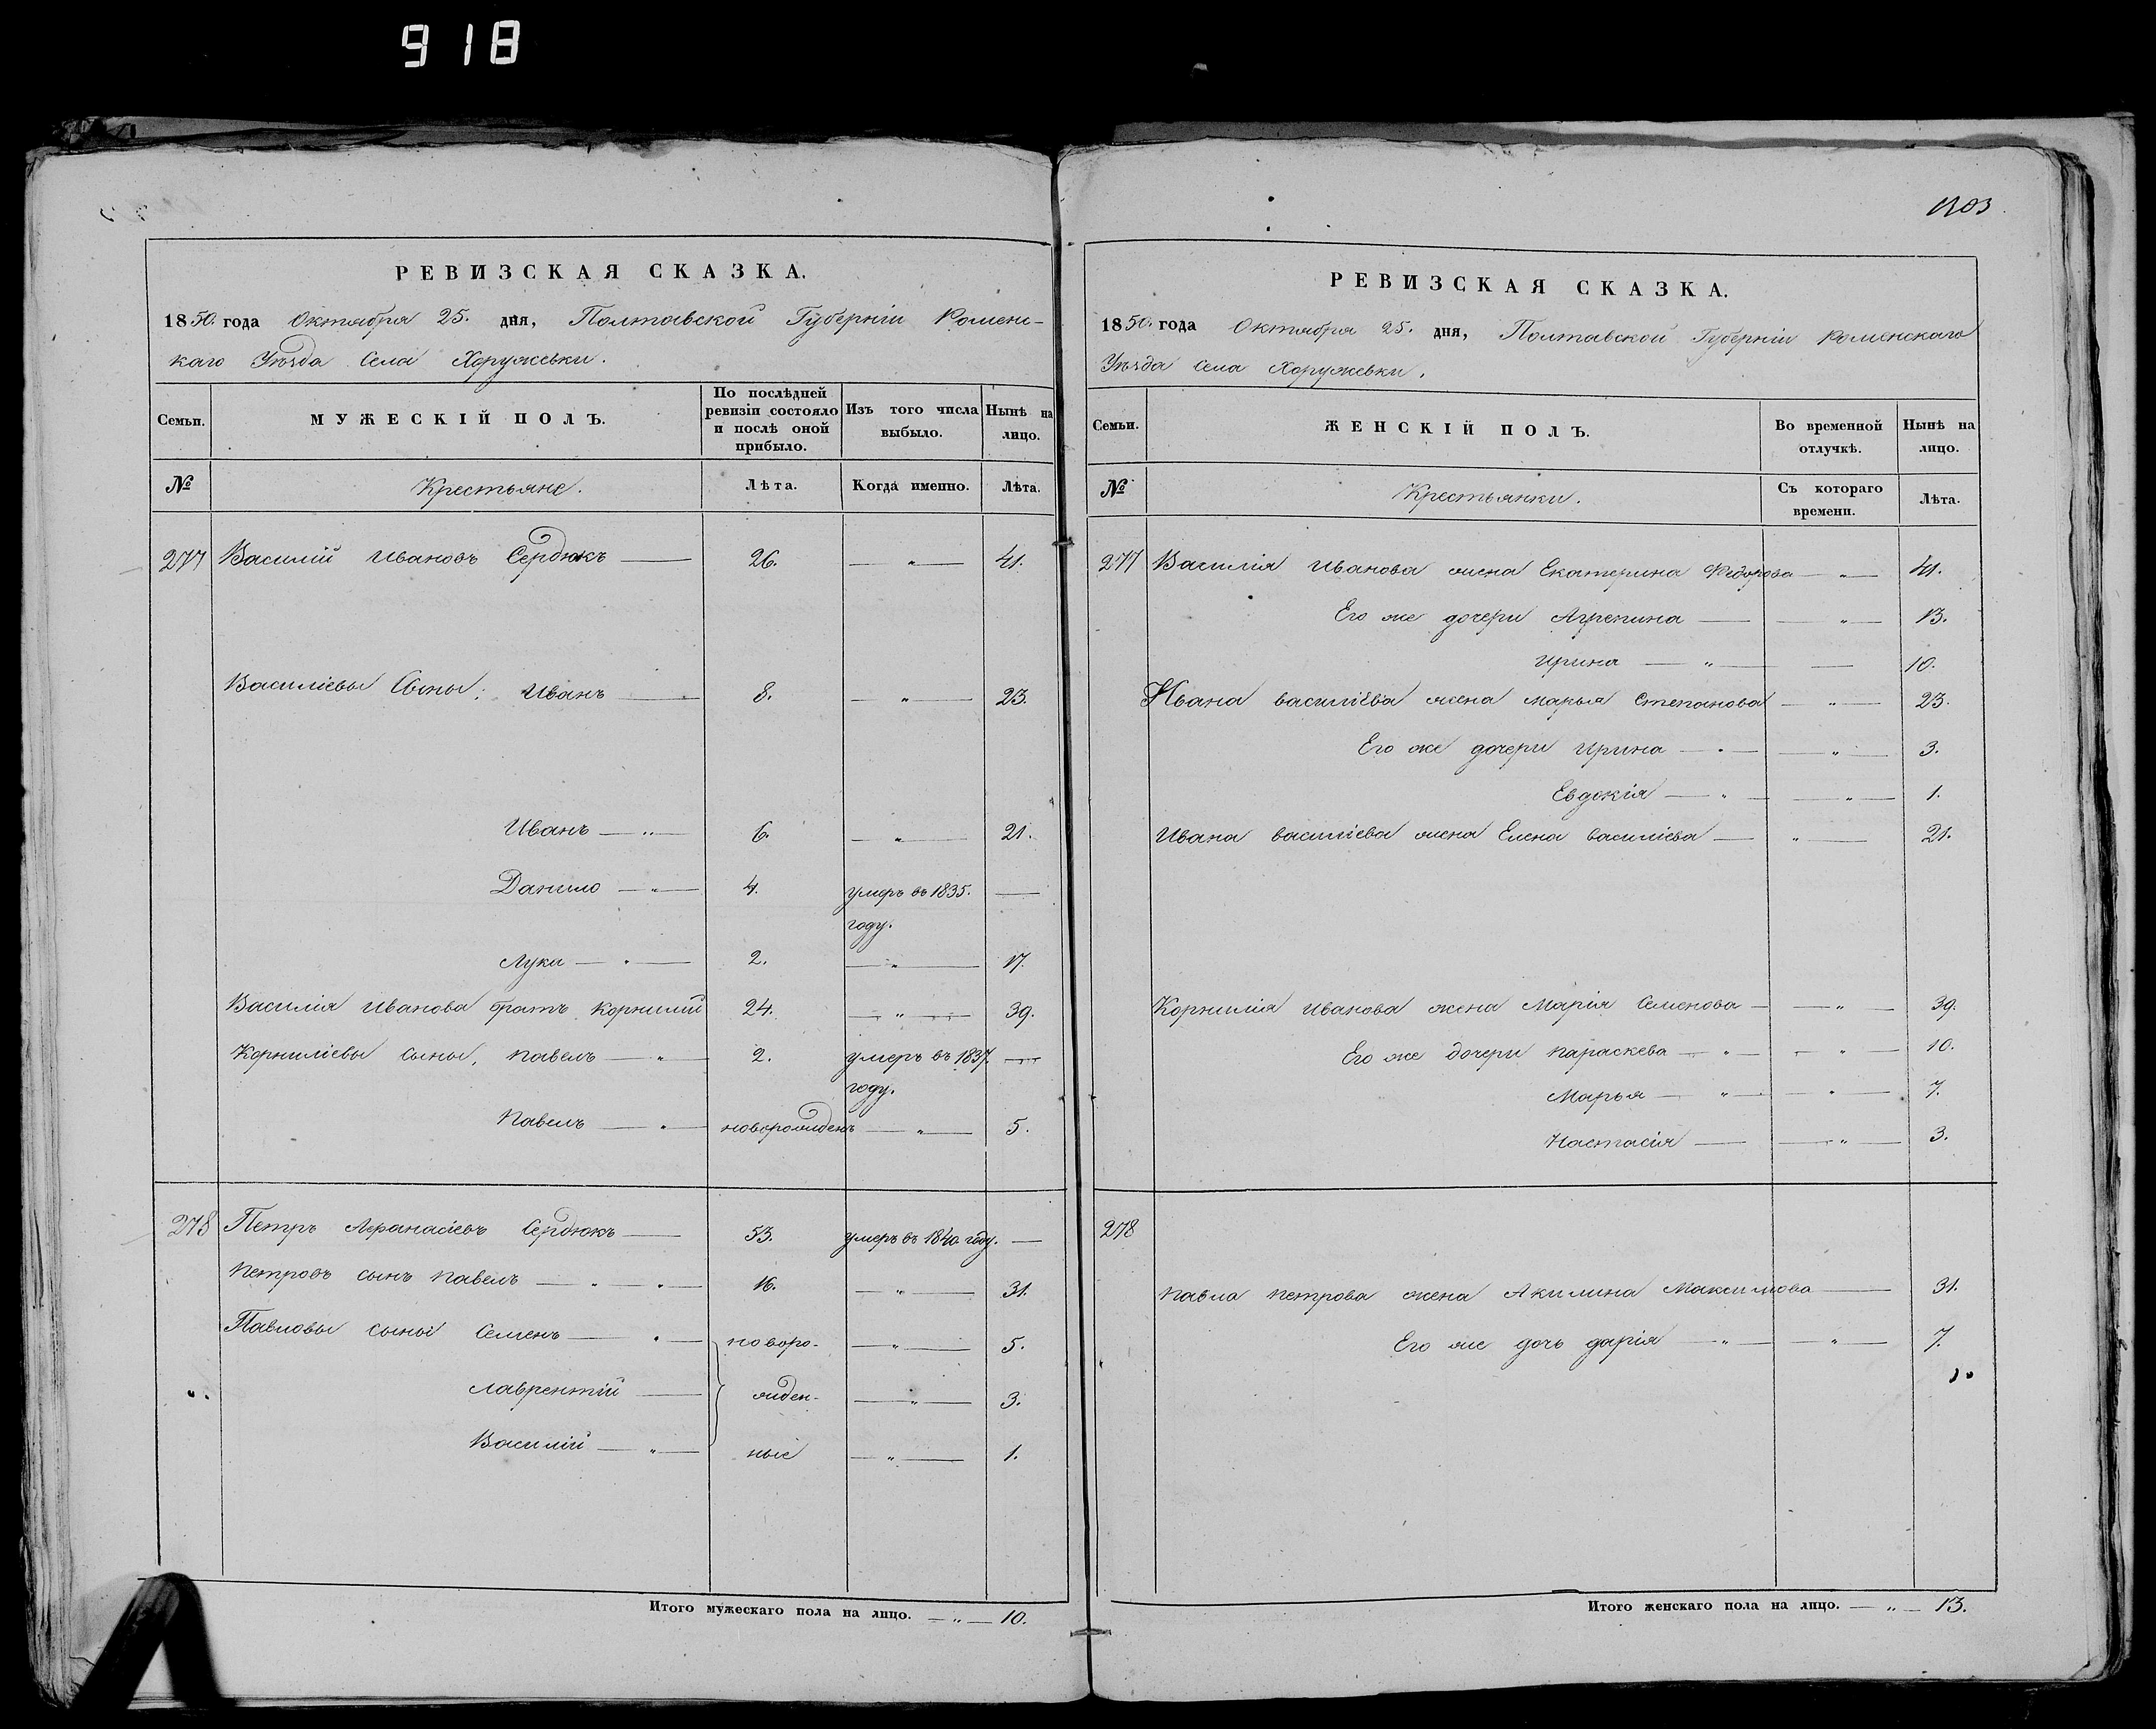 918
1303
РЕВИЗСКАЯ СКАЗКА.
1850. года Октября 25. дня, Полтавской Губерніи Роменс-
каго Уѣзда Села Хоружевки.
Семьи. МУЖЕСКІЙ ПОЛЪ. По послѣдней ревизіи состояло и послѣ оной прибыло. Изъ того числа выбыло. Нынѣ на лицо.
№ Крестьяне. Лѣта. Когда именно. Лѣта.
277 Василій Ивановъ Сердюкъ — 26. — „ — 41.
Василіевы Сыны: Иванъ — 8. — „ — 23.
Иванъ — „ — 6. — „ — 21.
Данило — „ — 4. умеръ въ 1835. —
году.
Лука — „ — 2. — „ — 17.
Василія Иванова братъ Корнилій 24. — „ — 39.
Корниліевы сыны, Павелъ — „ — 2. умеръ въ 1837. —
году.
Павелъ — „ — новорожденъ — „ — 5.
278 Петръ Афанасіевъ Сердюкъ — 53. умеръ въ 1840 году. —
Петровъ сынъ Павелъ — „ — „ — 16. — „ — 31.
Павловы сыны Семенъ — „ — новоро- — „ — 5.
Лаврентій — жден- — „ — 3.
Василій — „ — ные — „ — 1.
Итого мужескаго пола на лицо. — „ — 10.
РЕВИЗСКАЯ СКАЗКА.
1850. года Октября 25. дня, Полтавской Губерніи Роменскаго
Уѣзда Села Хоружевки.
Семьи. ЖЕНСКІЙ ПОЛЪ. Во временной отлучкѣ. Нынѣ на лицо.
№ Крестьянки. Съ котораго времени. Лѣта.
277 Василія Иванова жена Екатерина Федорова — „ — 41.
Его же дочери Агрепина — — „ — 13.
Ирина — „ — — 10.
Ивана Василіева жена Марья Степанова — „ — 23.
Его же дочери Ирина — „ — — „ — 3.
Евдокія — „ — — „ — 1.
Ивана Василіева жена Елена Василіева — „ — 21.
Корнилія Иванова жена Марія Семенова — — „ — 39.
Его же дочери Параскева — „ — — „ — 10.
Марья — „ — — „ — 7.
Настасія — — „ — 3.
278
Павла Петрова жена Акилина Максимова — 31.
Его же дочь Дарія — „ — — „ — 7.
Итого женскаго пола на лицо. — „ — 13.